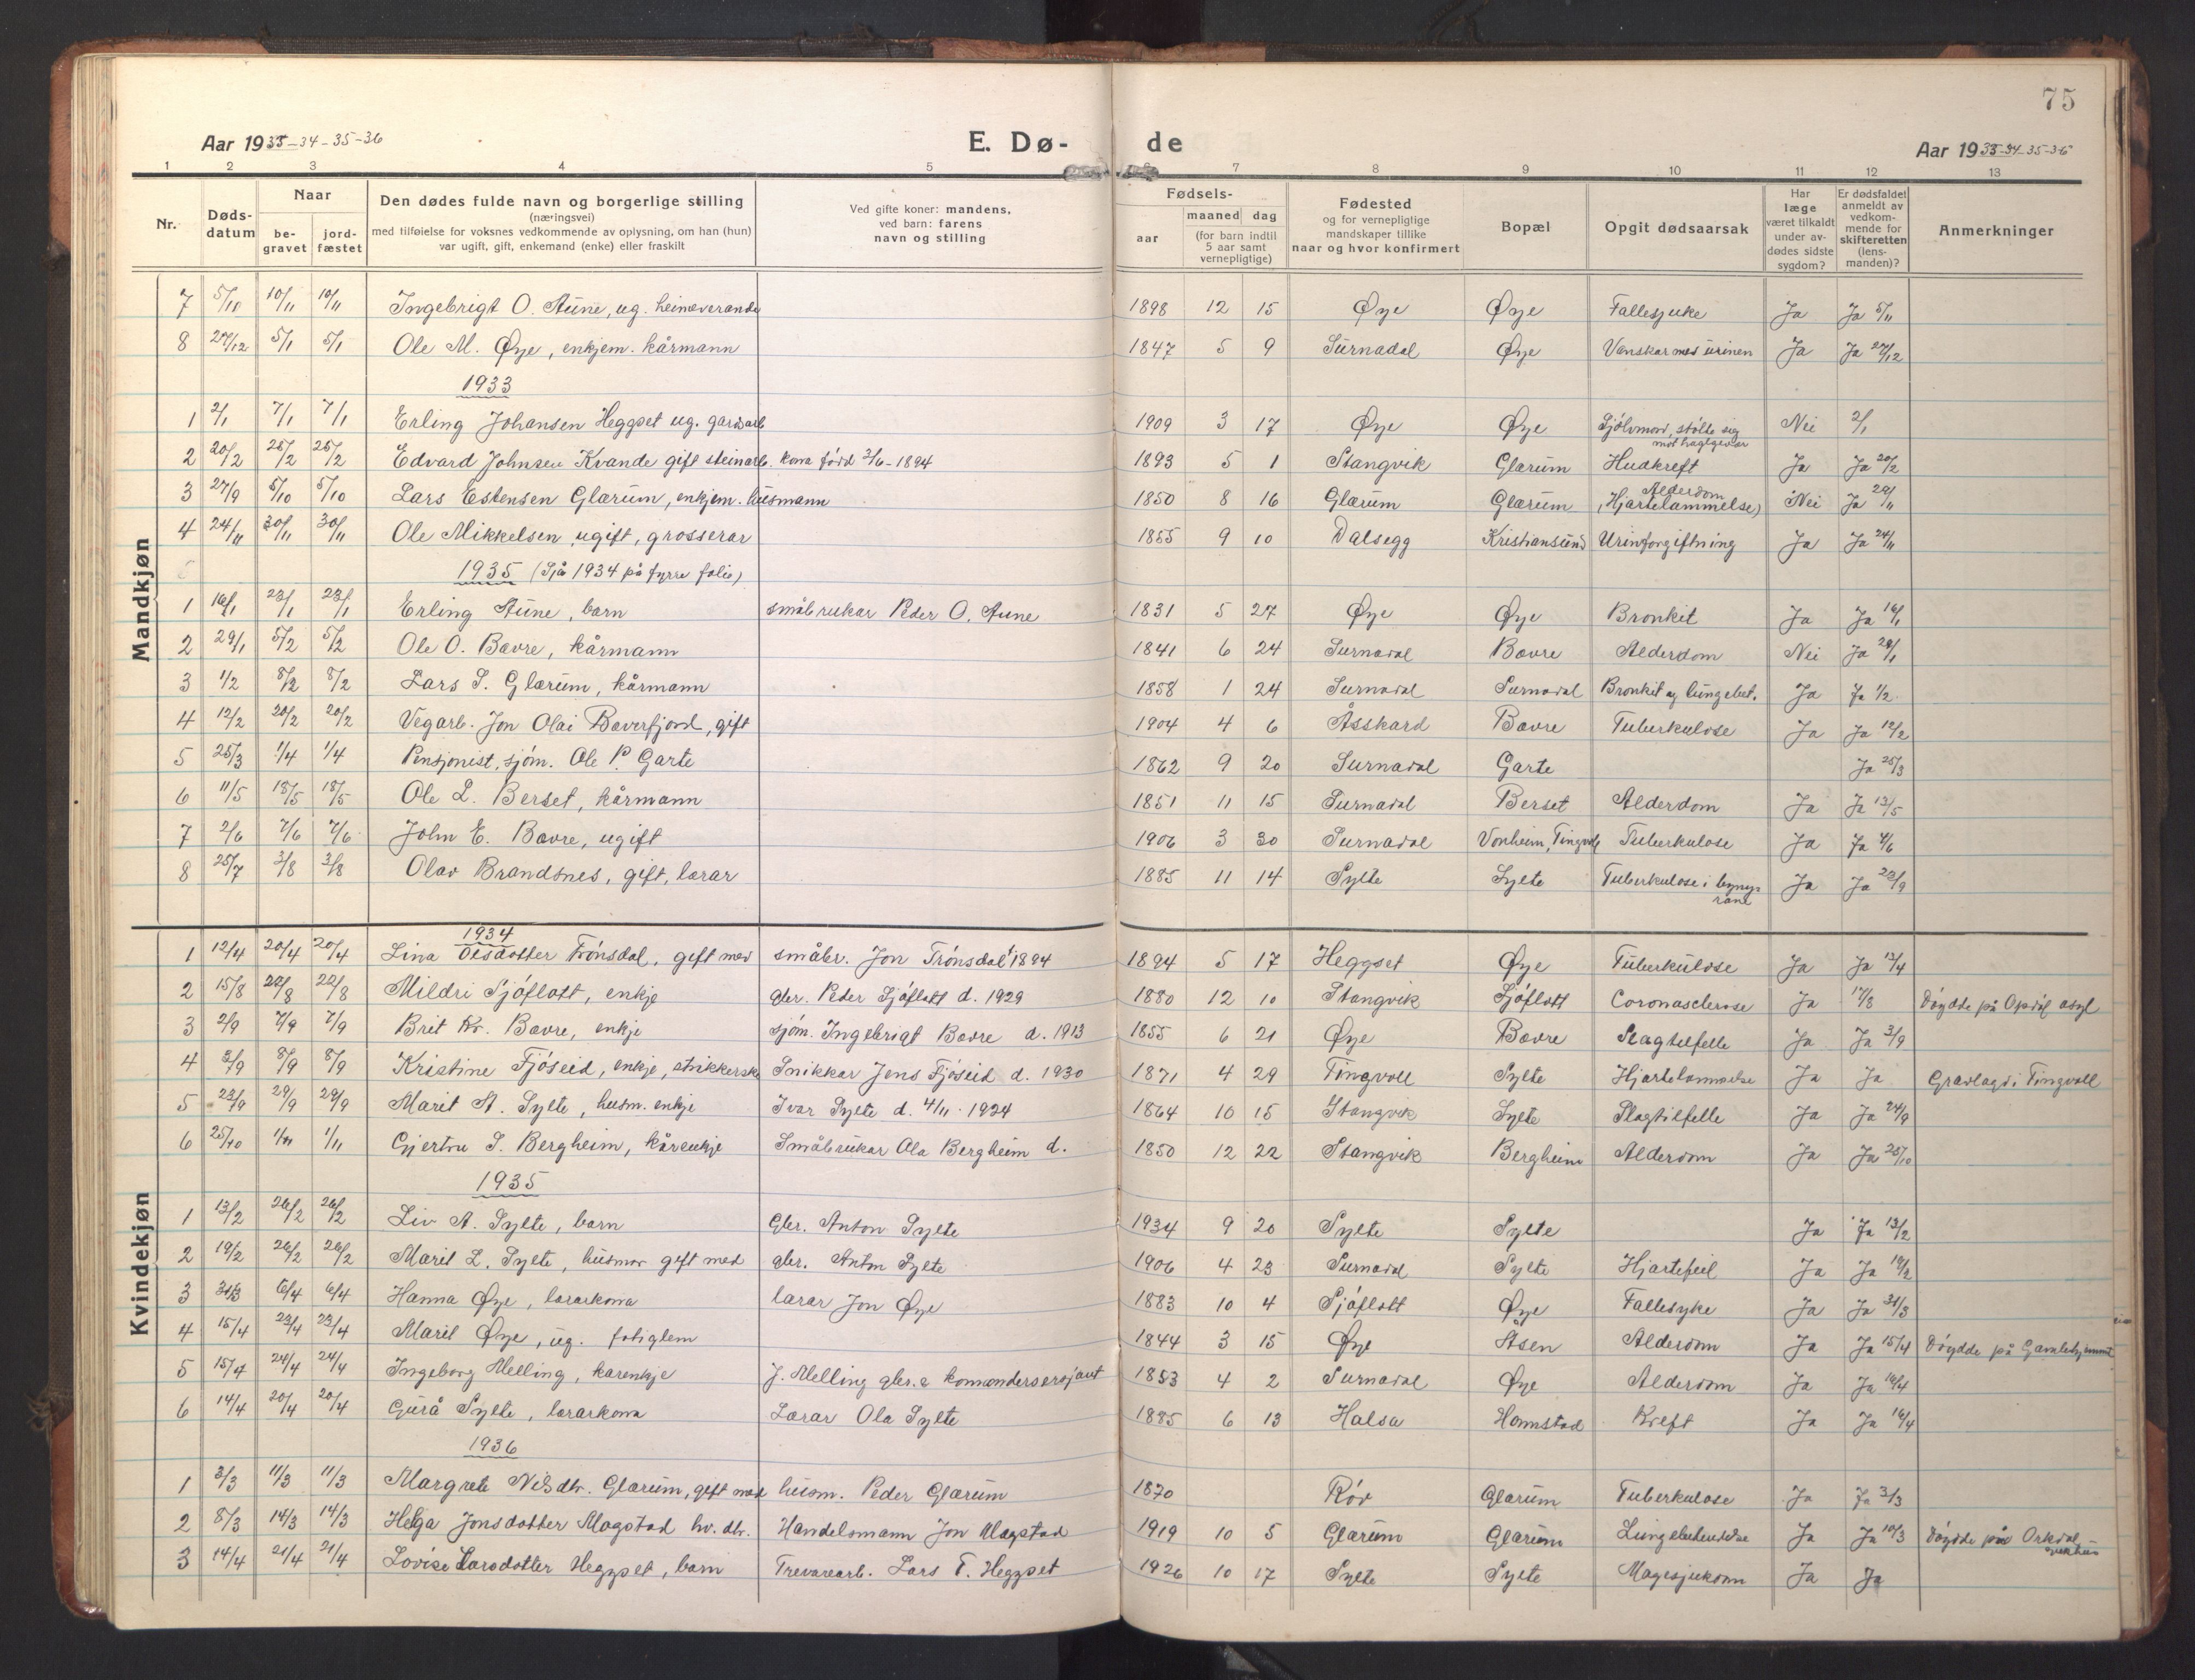 75
Aar 1933-34-35-36 E. Dø- de Aar 1933-34-35-36
1 2 3 4 5 6 7 8 9 10 11 12 13
Nr. Døds-datum Naar be-gravet jord-fæstet Den dødes fulde navn og borgerlige stilling (næringsvei) med tilføielse for voksnes vedkommende av oplysning, om han (hun) var ugift, gift, enkemand (enke) eller fraskilt Ved gifte koner: mandens, ved barn: farens navn og stilling Fødsels- aar maaned dag (for barn indtil 5 aar samt vernepligtige) Fødested og for vernepligtige mandskaper tillike naar og hvor konfirmert Bopæl Opgit dødsaarsak Har læge været tilkaldt under av-dødes sidste sygdom? Er dødsfaldet anmeldt av vedkom-mende for skifteretten (lens-manden)? Anmerkninger
Mandkjøn
7 5/11 10/11 10/11 Ingebrigt O. Aune, ug. heimeverande 1898 12 15 Øye Øye Fallesjuke Ja Ja 5/11
8 27/12 5/1 5/1 Ole M. Øye, enkjem. kårmann 1847 5 9 Surnadal Øye Vanskar med urinen Ja Ja 27/12
1933
1 2/1 7/1 7/1 Erling Johansen Heggset ug. gardsarb 1909 3 17 Øye Øye Sjølvmord, Nei 2/1
2 20/2 25/2 25/2 Edvard Johnsen Kvande gift steinarb. kona født 2/6-1894 1893 5 1 Stangvik Glærum Hudkreft Ja Ja 20/2
3 27/9 5/10 5/10 Lars Estensen Glærum, enkjem. husmann 1850 8 16 Glærum Glærum Alderdom (Hjartelammelse) Nei Ja
4 24/11 30/11 30/11 Ole Mikkelsen ugift, grosserar 1855 9 10 Dalsegg Kristiansund Urinforgiftning Ja Ja 24/11
1935 (Sjå 1934 på fyrre folie)
1 16/1 23/1 23/1 Erling Aune, barn småbrukar Peder O. Aune 1831 5 27 Øye Øye Bronkit Ja Ja 16/1
2 29/1 5/2 5/2 Ole O. Bævre, kårmann 1841 6 24 Surnadal Bævre Alderdom Nei Ja 29/1
3 1/2 8/2 8/2 Lars S. Glærum, kårmann 1858 1 24 Surnadal Surnadal Bronkit og lungebet. Ja Ja 1/2
4 12/2 20/2 20/2 Vegarb. Jon Olai Bæverfjord, gift 1904 4 6 Åsskard Bævre Tuberkulose Ja Ja 12/2
5 25/3 1/4 1/4 Pensjonist, sjøm. Ole P. Garte 1862 9 20 Surnadal Garte Ja 25/3
6 11/5 18/5 18/5 Ole L. Berset, kårmann 1851 11 15 Surnadal Berset Alderdom Ja Ja 13/5
7 2/6 7/6 7/6 John E. Bævre, ugift 1906 3 30 Surnadal Vonheim, Tingvoll Tuberkulose Ja Ja 4/6
8 25/7 3/8 3/8 Olav Brandsnes, gift, lærar 1885 11 14 Sylte Sylte Tuberkulose i Ja Ja
Kvindekjøn
1934
1 12/4 20/4 20/4 Lina Olsdotter Trønsdal, gift med småbr. Jon Trønsdal 1894 1894 5 17 Heggset Øye Tuberkulose Ja Ja 13/4
2 15/8 22/8 22/8 Mildri Sjøflott, enkje gbr. Peder Sjøflott d. 1929 1880 12 10 Stangvik Sjøflott Coronasclerose Ja 17/8 Døydde på Opdøl asyl
3 2/9 7/9 7/9 Brit Kr. Bævre, enkje sjøm. Ingebrigt Bævre d. 1913 1855 6 21 Øye Bævre Slagtilfelle Ja Ja 3/9
4 3/9 8/9 8/9 Kristine Fjøseid, enkje, strikkerske Snikkar Jens Fjøseid d. 1930 1871 4 29 Tingvoll Sylte Hjartelammelse Ja Ja Gravlagd i Tingvoll
5 23/9 29/9 29/9 Marit A. Sylte, husm. enkje Ivar Sylte d. 4/11 1924 1864 10 15 Stangvik Sylte Slagtilfelle Ja Ja 24/9
6 25/10 1/11 1/11 Gjertru S. Bergheim, kårenkje Småbrukar Ola Bergheim d. 1850 12 22 Stangvik Bergheim Alderdom Ja Ja 25/10
1935
1 13/2 26/2 26/2 Liv A. Sylte, barn Gbr. Anton Sylte 1934 9 20 Sylte Sylte Ja Ja 13/2
2 19/2 26/2 26/2 Marit L. Sylte, husmor gift med gbr. Anton Sylte 1906 4 23 Surnadal Sylte Hjartefeil Ja Ja 19/2
3 31/3 6/4 6/4 Hanna Øye, lærarkona lærar Jon Øye 1883 10 4 Sjøflott Øye Fallesyke Ja Ja 31/3
4 15/4 23/4 23/4 Marit Øye, ug. fatiglem 1844 3 15 Øye Åsen Alderdom Ja Ja 15/4 Døydde på Gamlehjemmet
5 15/4 24/4 24/4 Ingeborg Melling, kårenkje J. Melling gbr. & kommandersersjant 1853 4 2 Surnadal Øye Alderdom Ja Ja 16/4
6 14/4 20/4 20/4 Gurå Sylte, lærarkona Lærar Ola Sylte 1885 6 13 Halsa Hamstad Kreft Ja Ja 16/4
1936
1 3/3 11/3 11/3 Margrete Nilsdtr. Glærum, gift med husm. Peder Glærum 1870 Rør Glærum Tuberkulose Ja Ja 3/3
2 8/3 14/3 14/3 Helga Jonsdotter Mogstad hv. dtr. Handelsmann Jon Mogstad 1919 10 5 Glærum Glærum Lungebetendelse Ja Ja 10/3 Døydde på Orkdal sjukhus
3 14/4 21/4 21/4 Lovise Larsdotter Heggset, barn Trevarearb. Lars T. Heggset 1926 10 17 Sylte Sylte Magesjukdom Ja Ja